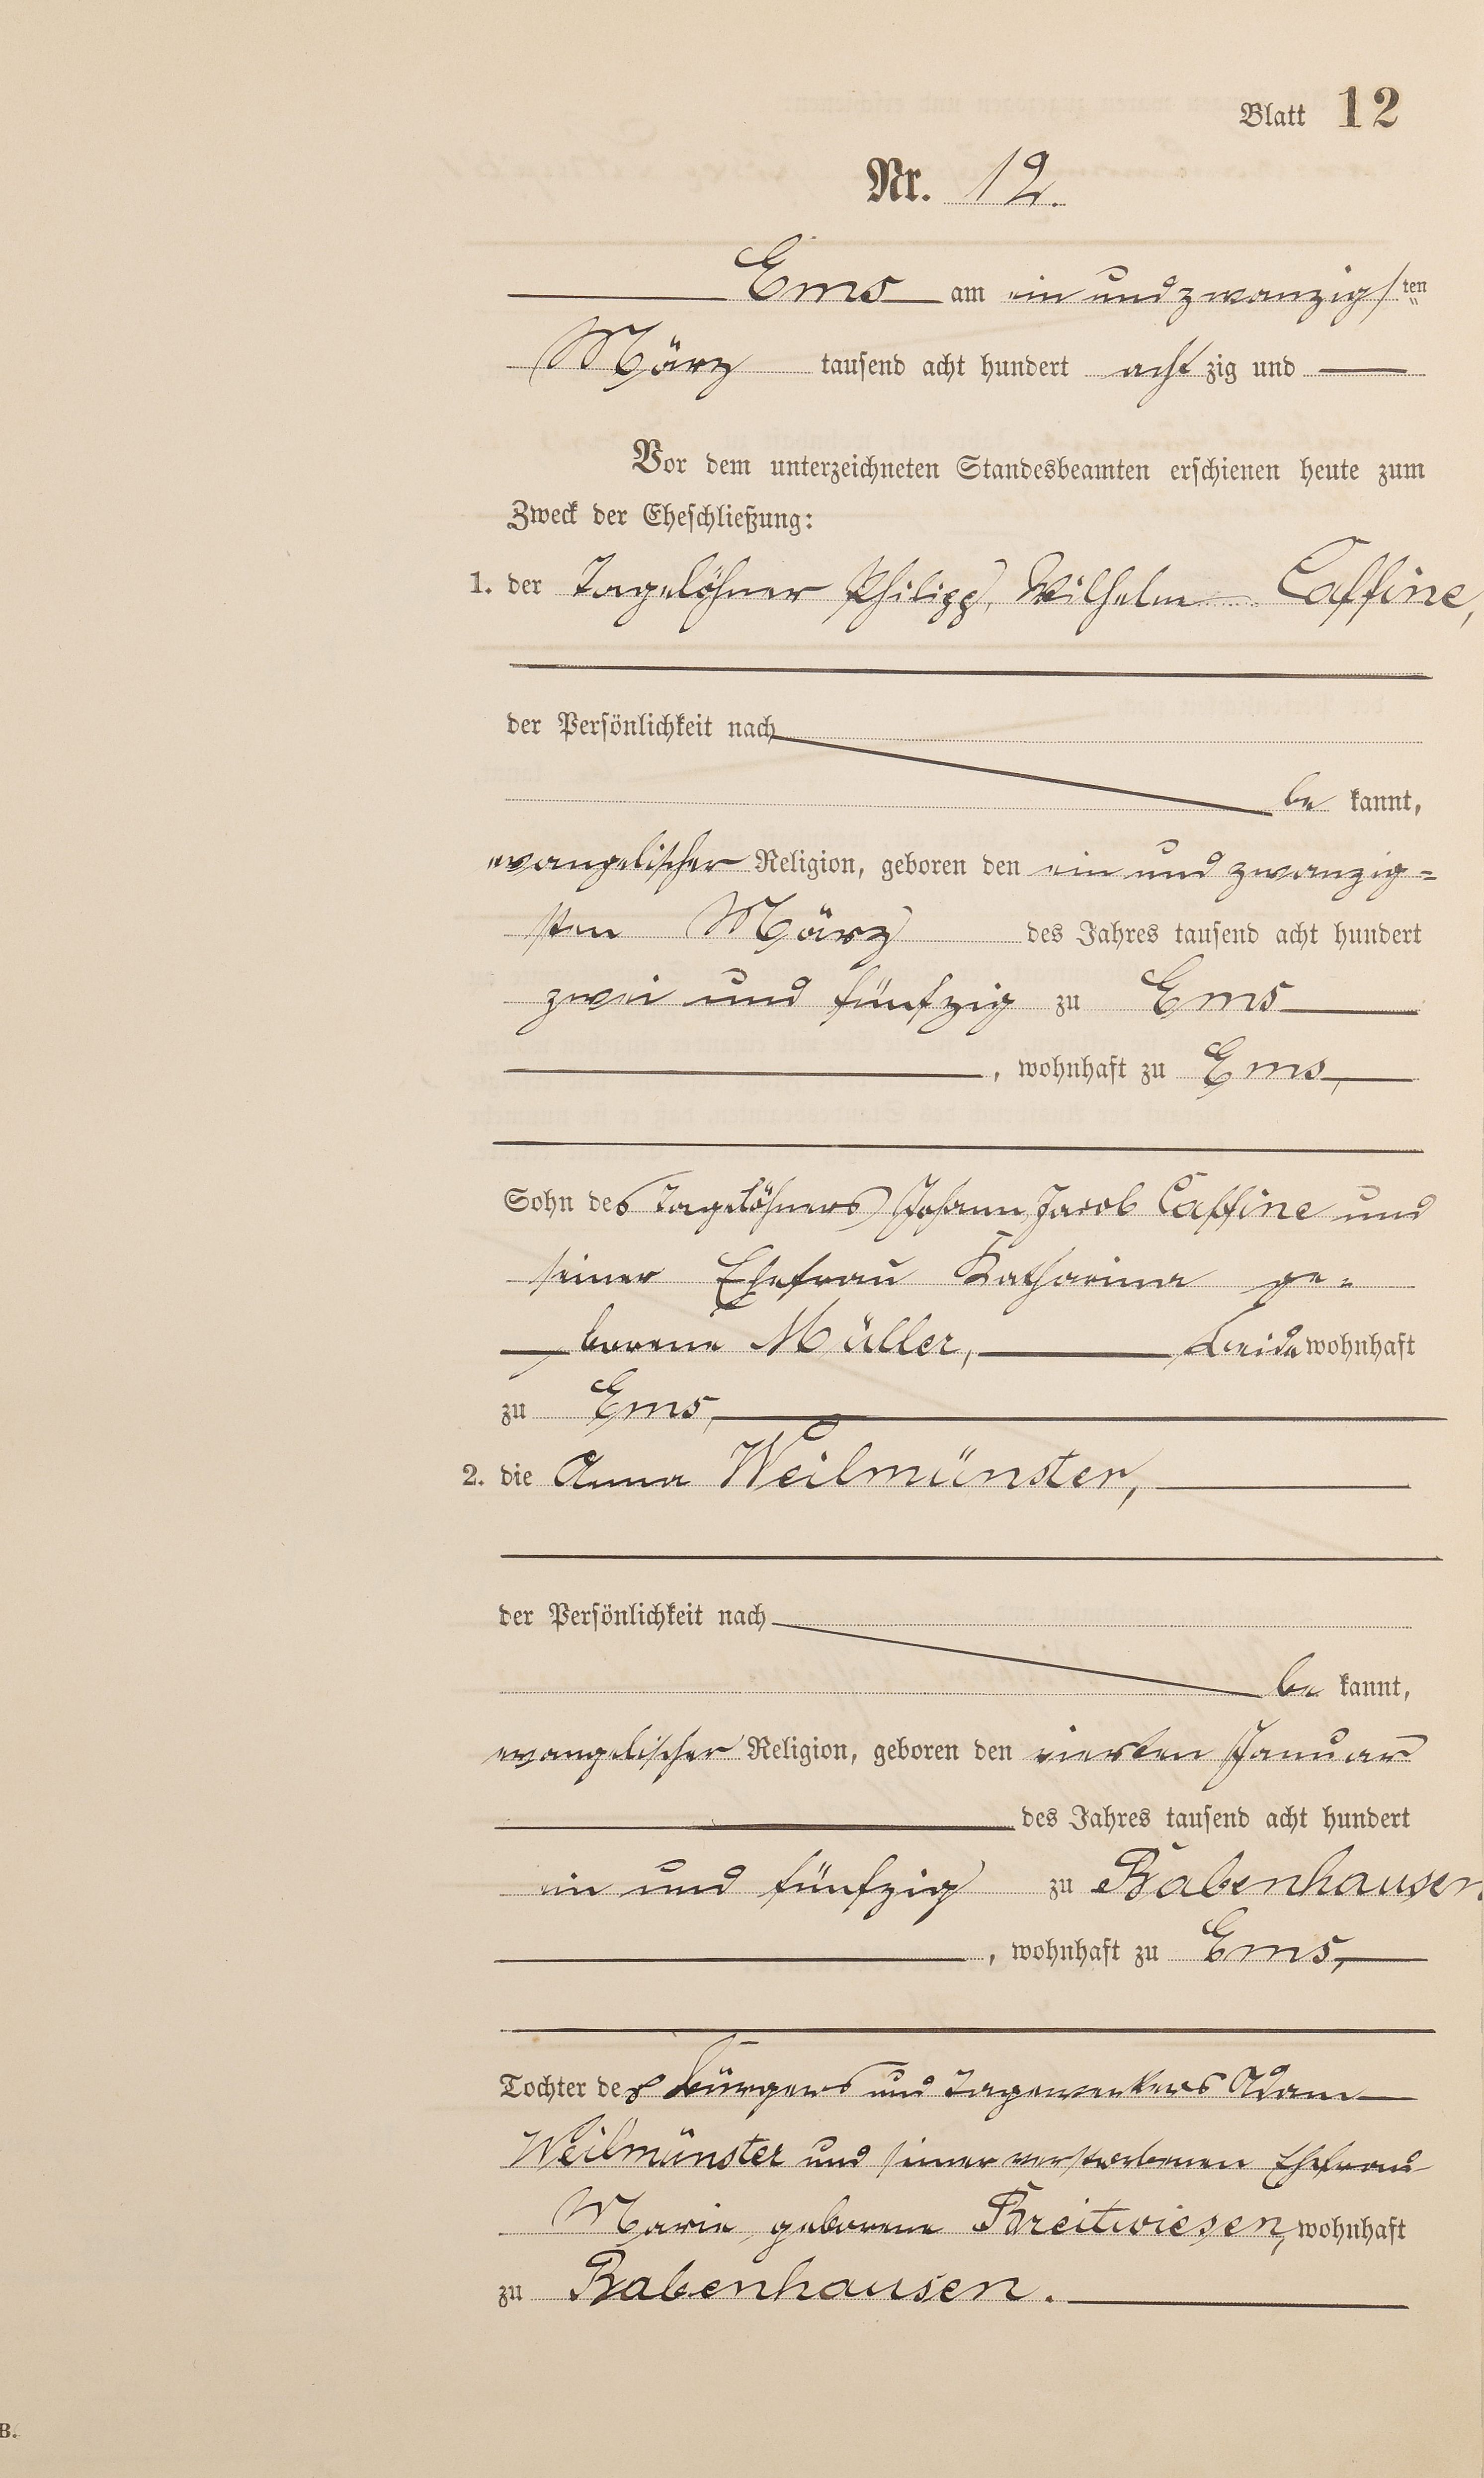 Blatt 12
Nr. 12.
Ems am ein und zwanzigsten
März tausend acht hundert acht zig und
Vor dem unterzeichneten Standesbeamten erschienen heute zum
Zweck der Eheschließung:
1. der Tagelöhner Philipp, Wilhelm Caffine,
der Persönlichkeit nach
be kannt,
evangelischer Religion, geboren den ein und zwanzig=
sten März des Jahres tausend acht hundert
zwei und fünfzig zu Ems
, wohnhaft zu Ems,
Sohn des Tagelöhners Johann Jacob Caffine und
seiner Ehefrau Katharina ge=
borene Müller, beide wohnhaft
zu Ems,
2. die Anna Weilmünster,
der Persönlichkeit nach
be kannt,
evangelischer Religion, geboren den vierten Januar
des Jahres tausend acht hundert
ein und fünfzig zu Babenhausen
, wohnhaft zu Ems,
Tochter des Bürgers und Tagewerkers Adam
Weilmünster und seiner verstorbenen Ehefrau
Marie geborene Breitwiesen, wohnhaft
zu Babenhausen.
B.